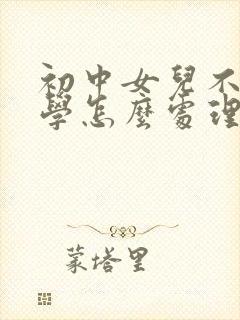 初中女兒不
學怎麼處理
蒙塔里